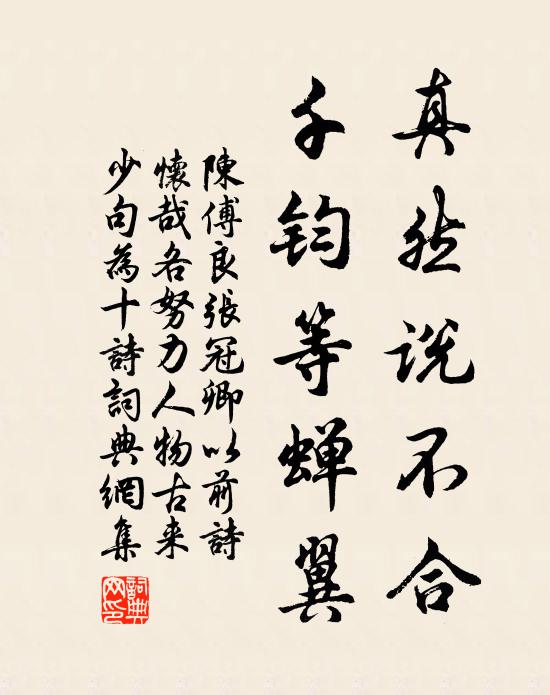 真然说不合
千钧等蝉翼
陳傅良張冠卿以前詩
懷哉各努力人物古来
少句為十詩詞典網集
詞典